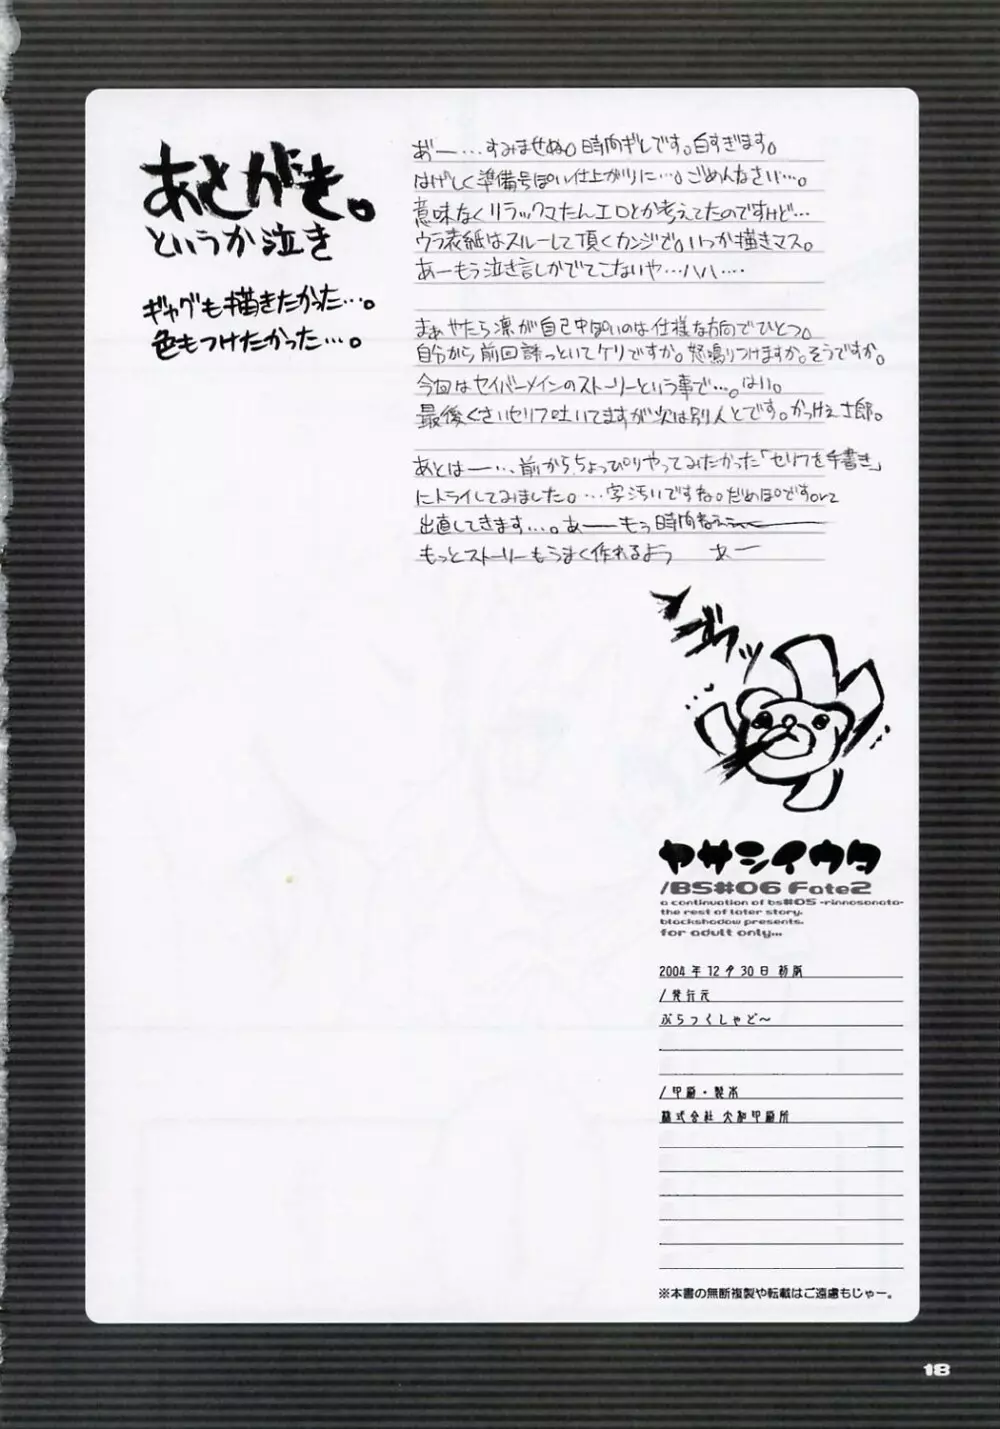 あとがき。
というか泣き
ギャグも描きたかった…。
色もつけたかった…。
あ゛ー…すみませぬ。時間ギレです。白すぎます。
はげしく準備号ぽい仕上がりに…。ごめんなさい…。
意味なくリラックマたんエロとか考えてたのですけど…
ウラ表紙はスルーして頂くカンジで。いつか描きマス。
あーもう泣き言しかでてこないや…ハハ….
まぁやたら凛が自己中ぽいのは仕様な方向でひとつ。
自分から前回誘っといてケリですか。怒鳴りつけますか。そうですか。
今回はセイバーメインのストーリーという事で…。はい。
最後くさいセリフ吐いてますが次は別人とです。かっけぇ士郎。
あとはー…前からちょっぴりやってみたかった「セリフを手書き」
にトライしてみました。…字汚いですね。だめぽですorz
出直してきます…。あーーもう時間ねえぇー
もっとストーリーもうまく作れるよう あー
ヤサシイウタ
/BS#06 Fate2
a continuation of bs#05 -rinnosonata-
the rest of later story.
blackshadow presents.
for adult only...
2004年12月30日 初版
/発行元
ぶらっくしゃど〜
/印刷・製本
株式会社 大和印刷所
※本書の無断複製や転載はご遠慮もじゃー。
18